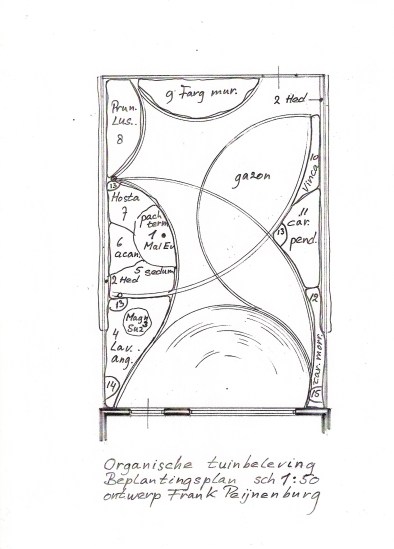 9 Farg mur.
2 Hed
Prun.
Lus..
8
gazon
10
Vinca
13
Hosta
7
pach
term
1
Mal Ev
11
car.
pend.
13
6
acan.
5 sedum
2 Hed
13
12
Car. morr.
Magn
Su 3
4
Lav.
ang.
14
15
Organische tuinbeleving
Beplantingsplan sch 1:50
ontwerp Frank Peijnenburg